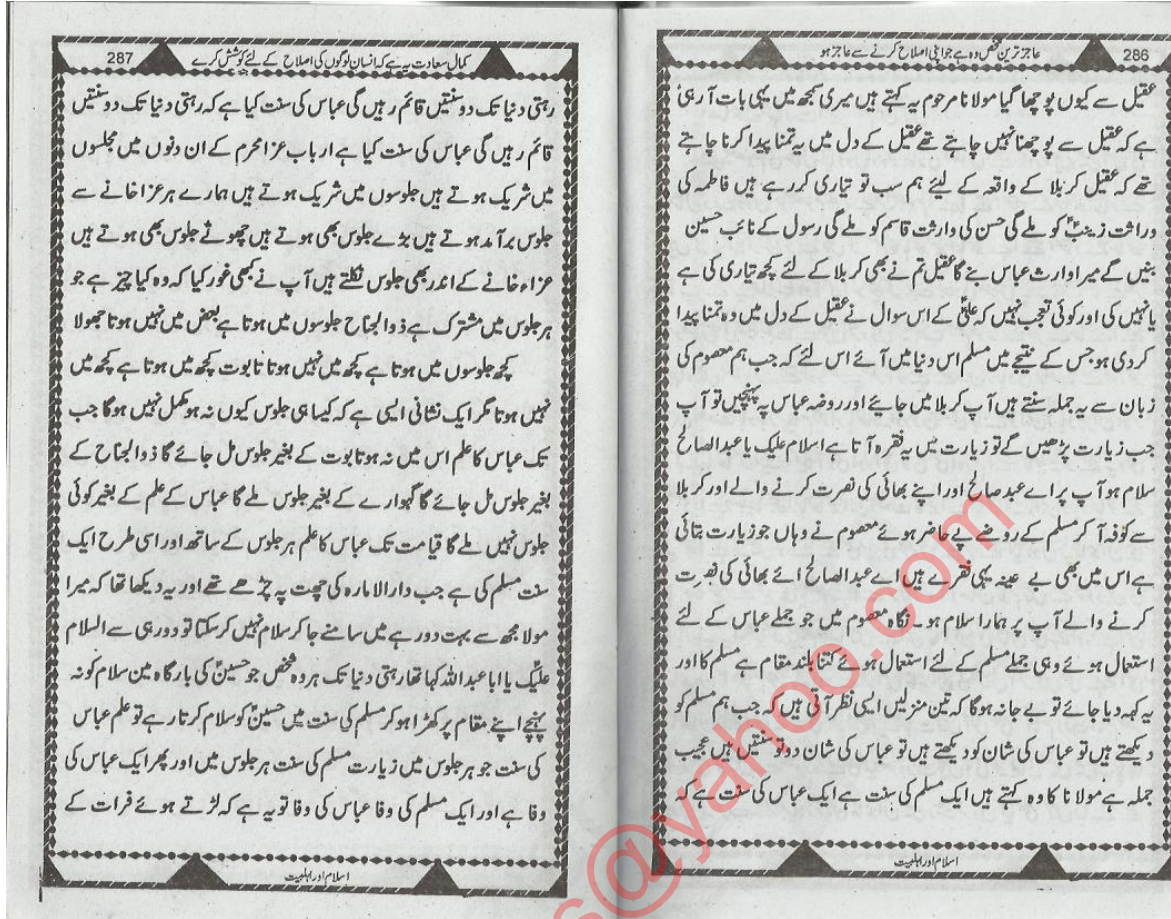 286
عاجز ترین شخص وہ ہے جو اپنی اصلاح کرنے سے عاجز ہو
عقیل سے کیوں پوچھا گیا مولانا مرحوم یہ کہتے ہیں میری سمجھ میں یہی بات آ رہی
ہے کہ عقیل سے پوچھنا نہیں چاہتے تھے عقیل کے دل میں یہ تمنا پیدا کرنا چاہتے
تھے کہ عقیل کربلا کے واقعہ کے لیئے ہم سب تو تیاری کر رہے ہیں فاطمہ کی
وراثت زینبؑ کو ملے گی حسن کی وارثت قاسم کو ملے گی رسول کے نائب حسین
بنیں گے میرا وارث عباس بنے گا عقیل تم نے بھی کربلا کے لئے کچھ تیاری کی ہے
یا نہیں کی اور کوئی تعجب نہیں کہ علیؑ کے اس سوال نے عقیل کے دل میں وہ تمنا پیدا
کر دی ہو جس کے نتیجے میں مسلم اس دنیا میں آئے اس لئے کہ جب ہم معصوم کی
زبان سے یہ جملہ سنتے ہیں آپ کربلا میں جایئے اور روضہ عباس پہ پہنچیں تو آپ
جب زیارت پڑھیں گے تو زیارت میں یہ فقرہ آتا ہے اسلام علیک یا عبد الصالح
سلام ہو آپ پر اے عبد صالح اور اپنے بھائی کی نصرت کرنے والے اور کربلا
سے کوفہ آ کر مسلم کے روضے پے حاضر ہوئے معصوم نے وہاں جو زیارت بتائی
ہے اس میں بھی بے عینہ یہی فقرے ہیں اے عبد الصالح ائے بھائی کی نصرت
کرنے والے آپ پر ہمارا سلام ہو۔ نگاہ معصوم میں جو جملے عباس کے لئے
استعمال ہوئے وہی جملے مسلم کے لئے استعمال ہوئے کتنا بلند مقام ہے مسلم کا اور
یہ کہہ دیا جائے تو بے جا نہ ہوگا کہ تین منزلیں ایسی نظر آتی ہیں کہ جب ہم مسلم کو
دیکھتے ہیں تو عباس کی شان کو دیکھتے ہیں تو عباس کی شان دو تو سنتیں ہیں عجیب
جملہ ہے مولانا کا وہ کہتے ہیں ایک مسلم کی سنت ہے ایک عباس کی سنت ہے کہ
اسلام اور اہلبیت
287
کمال سعادت یہ ہے کہ انسان لوگوں کی اصلاح کے لئے کوشش کرے
رہتی دنیا تک دو سنتیں قائم رہیں گی عباس کی سنت کیا ہے کہ رہتی دنیا تک دو سنتیں
قائم رہیں گی عباس کی سنت کیا ہے ارباب عزا محرم کے ان دنوں میں مجلسوں
میں شریک ہوتے ہیں جلوسوں میں شریک ہوتے ہیں ہمارے ہر عزا خانے سے
جلوس برآمد ہوتے ہیں بڑے جلوس بھی ہوتے ہیں چھوٹے جلوس بھی ہوتے ہیں
عزاء خانے کے اندر بھی جلوس نکلتے ہیں آپ نے کبھی غور کیا کہ وہ کیا چیز ہے جو
ہر جلوس میں مشترک ہے ذوالجناح جلوسوں میں ہوتا ہے بعض میں نہیں ہوتا جھولا
کچھ جلوسوں میں ہوتا ہے کچھ میں نہیں ہوتا تابوت کچھ میں ہوتا ہے کچھ میں
نہیں ہوتا مگر ایک نشانی ایسی ہے کہ کیسا ہی جلوس کیوں نہ ہو مکمل نہیں ہوگا جب
تک عباس کا علم اس میں نہ ہو تابوت کے بغیر جلوس مل جائے گا ذوالجناح کے
بغیر جلوس مل جائے گا گہوارے کے بغیر جلوس ملے گا عباس کے علم کے بغیر کوئی
جلوس نہیں ملے گا قیامت تک عباس کا علم ہر جلوس کے ساتھ اور اسی طرح ایک
سنت مسلم کی ہے جب دار الامارہ کی چھت پہ چڑھے تھے اور یہ دیکھا تھا کہ میرا
مولا مجھ سے بہت دور ہے میں سامنے جا کر سلام نہیں کر سکتا تو دور ہی سے السلام
علیک یا ابا عبد اللہ کہا تھا رہتی دنیا تک ہر وہ شخص جو حسینؑ کی بارگاہ مین سلام کو نہ
پہنچے اپنے مقام پر کھڑا ہو کر مسلم کی سنت میں حسینؑ کو سلام کرتا رہے تو علم عباس
کی سنت جو ہر جلوس میں زیارت مسلم کی سنت ہر جلوس میں اور پھر ایک عباس کی
وفا ہے اور ایک مسلم کی وفا عباس کی وفا تو یہ ہے کہ لڑتے ہوئے فرات کے
اسلام اور اہلبیت
s@yahoo.com